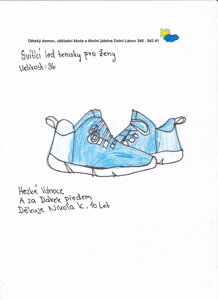 Dětský domov, základní škola a školní jídelna Dolní Lánov 240, 543 41
Svítící led tenisky pro ženy
Velikost: 36
Hezké Vánoce
A za Dárek předem
Děkuje Nikola K. 10 Let